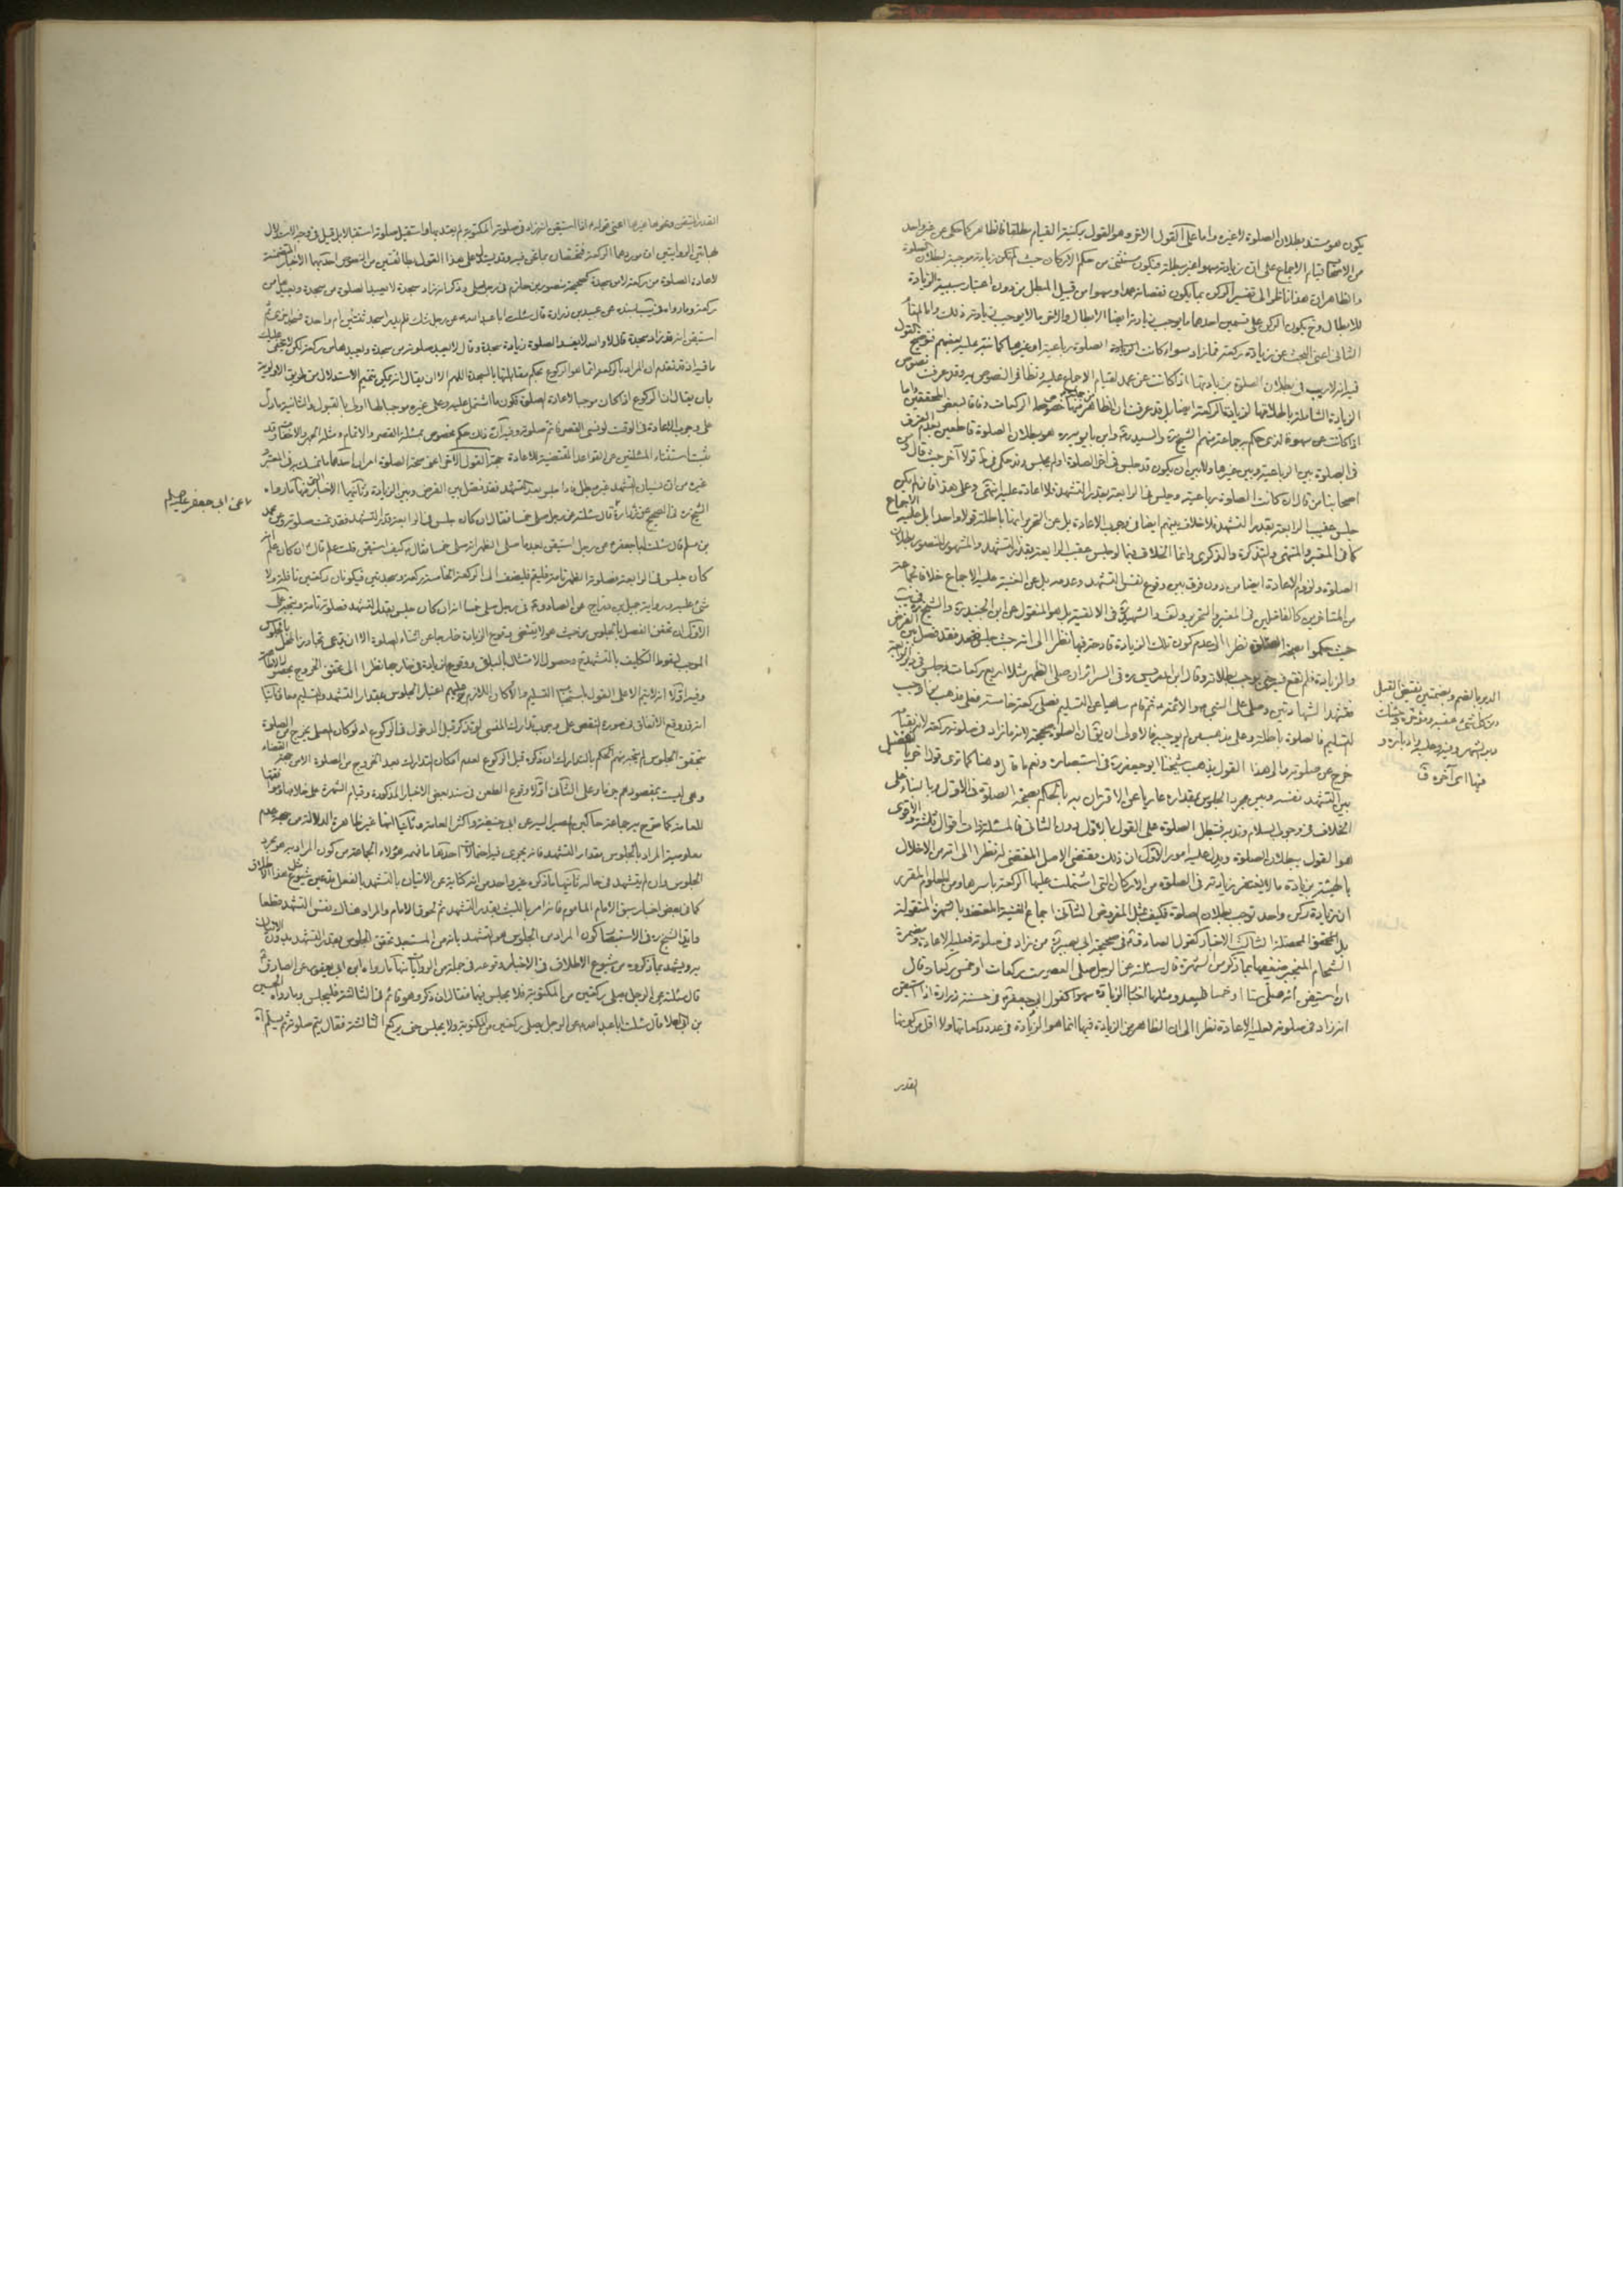 يكون هو مستند بطلان الصلوة لا غيره واما على القول الاخر وهو القول بركنية القيام مطلقا فالظاهر كما حكى عن غير واحد
من الاصحاب قيام الاجماع على ان زيادته سهوا غير مبطلة فيكون مستثنى من حكم الاركان حيث لم تكن زيادته موجبة لبطلان الصلوة
والظاهر ان هذا ناظر الى تفسير الركن بما يكون نقصانه عمدا وسهوا من قبيل المبطل من دون اعتبار سببية الزيادة
للابطال وح يكون الركن على قسمين احدهما ما يوجب زيادته ايضا الابطال والاخر ما لا يوجب زيادته ذلك واما المقام
الثانى اعنى البحث عن زيادة ركعة فما زاد سواء كانت الصلوة رباعية او غيرها كما نبه عليه بعضهم فتوضيح القول
فيه انه لا ريب فى بطلان الصلوة بزيادتها اذا كانت عن عمد لقيام الاجماع عليه وتظافر النصوص به وقد عرفت نصوص
الزيادة الشاملة باطلاقها لزيادة الركعة ايضا بل قد عرفت ان الظاهر منها خصوص الركعات وفاقا لبعض المحققين واما
اذا كانت عن سهو فالذى حكم به جماعة منهم الشيخ ره والسيد ره وابن بابويه ره هو بطلان الصلوة قاطعين بعدم الفرق
فى الصلوة بين الرباعية وبين غيرها ولا بين ان يكون قد جلس فى اخر الصلوة او لم يجلس وقد حكى فى ط قولا آخر حيث قال وفى
اصحابنا من قال ان كانت الصلوة رباعية وجلس فى الرابعة بقدر التشهد فلا اعادة عليه انتهى وعلى هذا فان لم يكن
جلس عقيب الرابعة بقدر التشهد فلا خلاف بينهم ايضا فى وجوب الاعادة بل عن التحرير انها باطلة قولا واحدا بل عليه الاجماع
كما فى المعتبر والمنتهى والتذكرة والذكرى وانما الخلاف فيما لو جلس عقيب الرابعة بقدر التشهد والمشهور المنصور بطلان
الصلوة ولزوم الاعادة ايضا من دون فرق بين وقوع نفس التشهد وعدمه بل عن الغنية عليه الاجماع خلافا لجماعة
من المتاخرين كالفاضلين فى المعتبر والتحرير ولف والشهيد فى الالفية بل هو المنقول عن ابن الجنيد ره والشيخ ره فى يب
حيث حكموا بصحة الصلوة نظرا الى عدم كون تلك الزيادة قادحة فيها نظرا الى انه حيث جلس فقد فصل بين الفرض
والزيادة فلم تقع فيه حتى يوجب بطلانه وقال ابن ادريس ره فى السرائر ان صلى الظهر مثلا اربع ركعات وجلس فى دبر الرابعة
فتشهد الشهادتين وصلى على النبى ص والائمة ع ثم قام ساهيا عن التسليم فصلى ركعة خامسة فعلى مذهب من اوجب
التسليم فالصلوة باطلة وعلى مذهب من لم يوجبه فالاولى ان يقال ان الصلوة صحيحة لانه ما زاد فى صلوته ركعة لانه بقيامه
خرج من صلوته والى هذا القول يذهب شيخنا ابو جعفر ره فى استبصاره ونعم ما قال وهنا كما ترى قول اخر بالتفصيل
بين التشهد نفسه وبين مجرد الجلوس بمقداره عاريا عن الاقتران به بالحكم بصحة الصلوة فى الاول بالبناء على
الخلاف فى وجوب السلام وندبه فتبطل الصلوة على القول بالاول دون الثانى فالمسئلة ذات اقوال ثلثة والاقوى
هو القول ببطلان الصلوة ويدل عليه امور الاول ان ذلك مقتضى الاصل المقتضى له نظرا الى انه من الاخلال
بالهيئة بزيادة ما لا يغتفر زيادته فى الصلوة من الاركان التى اشتملت عليها الركعة باسرها ومن المعلوم المقرر
ان زيادة ركن واحد توجب بطلان الصلوة فكيف بمثل المفروض الثانى اجماع الغنية المعتضد بالشهرة المنقولة
بل المحققة المحصلة الثالث الاخبار كقول الصادق ع فى صحيحة ابى بصير ره من زاد فى صلوته فعليه الاعادة ومضمرة
الشحام المنجبر ضعفها بما ذكر من الشهرة قال سئلته عن الرجل صلى العصر ست ركعات او خمس ركعات قال
ان استيقن انه صلى ستا او خمسا فليعد ومثلهما اخبار الزيادة سهوا كقول ابى جعفر ع فى حسنة زرارة اذا استيقن
انه زاد فى صلوته فعليه الاعادة نظرا الى ان الظاهر من الزيادة فيها انما هو الزيادة فى عدد ركعاتها ولا اقل من كونها
القدر
الدبر بالضم وبضمتين نقيض القبل
ومن كل شئ عقبه ومؤخره وجئتك
دبر الشهر وفيه وعليه وادباره و
فيها اى آخره ق
القدر المتيقن ونحوها غيرها اعنى قوله ع اذا استيقن انه زاد فى صلوته المكتوبة لم يعتد بها واستقبل صلوته استقبالا بل قيل فى وجه الاستدلال
لاعادة الصلوة من ركعة لا من سجدة كصحيحة منصور بن حازم فى رجل صلى وذكر انه زاد سجدة لا يعيد الصلوة من سجدة ويعيدها من
ركعة وما رواه فى يب بسنده عن عبيد بن زرارة قال سئلت ابا عبد الله ع عن رجل شك فلم يدر اسجد ثنتين ام واحدة فسجد اخرى ثم
استيقن انه قد زاد سجدة قال لا والله لا يفسد الصلوة زيادة سجدة وقال لا يعيد صلوته من سجدة ويعيدها من ركعة لكن لا يخفى عليك
ما فيه اذ قد تقدم ان المراد بالركعة انما هو الركوع بحكم مقابلتها بالسجدة اللهم الا ان يقال انه يمكن تتميم الاستدلال من طريق الاولوية
بان يقال ان الركوع اذا كان موجبا لاعادة الصلوة فكون ما اشتمل عليه وعلى غيره موجبا لها اولى بالقبول والثانية ما دل
على وجوب الاعادة فى الوقت لو نسى القصر فاتم صلوته وفيه ان ذلك حكم مخصوص بمسئلة القصر والاتمام ومثله الجهر والاخفات وقد
ثبت استثناء المسئلتين عن القواعد المقتضية للاعادة حجة القول الاخر اعنى صحة الصلوة امران احدهما ما تمسك به فى المعتبر
غيره من ان نسيان التشهد غير مبطل فاذا جلس بقدر التشهد فقد فصل بين الفرض وبين الزيادة وثانيهما الاخبار فمنها ما رواه
الشيخ ره فى الصحيح عن زرارة قال سئلته عن رجل صلى خمسا فقال ان كان جلس فى الرابعة قدر التشهد فقد تمت صلوته وعن محمد
بن مسلم قال سئلت ابا جعفر ع عن رجل استيقن بعد ما صلى الظهر انه صلى خمسا فقال وكيف استيقن قلت علم قال ان كان علم انه
كان جلس فى الرابعة فصلوة الظهر تامة فليقم فليضف الى الركعة الخامسة ركعة وسجدتين فيكونان ركعتين نافلة ولا
شئ عليه ورواية جميل بن دراج عن الصادق ع فى رجل صلى خمسا انه ان كان جلس بقدر التشهد فصلوته تامة ويتجه على
الاول ان تحقق الفصل بالجلوس من حيث هو لا يقتضى وقوع الزيادة خارجا عن اثناء الصلوة الا ان يدعى تجاوز المحل بالجلوس
الموجب لسقوط التكليف بالتشهد ح وحصول الامتثال بالباقى ووقوع الزيادة فى خارجها نظرا الى تحقق الخروج بحصول
وفيه اولا انه لا يتم الا على القول باستحباب التسليم والا كان اللازم عليهم اعتبار الجلوس بمقدار التشهد والتسليم معا وثانيا
انه قد وقع الاتفاق وصورة النص على وجوب تدارك المنسى لو تذكر قبل الدخول فى الركوع اذ لو كان المصلى يخرج من الصلوة
بتحقق الجلوس لم يتجه منهم الحكم بالتدارك ان ذكره قبل الركوع لعدم امكان التدارك بعد الخروج من الصلوة الا من جهة القضاء
وهى ليست بمقصودهم جزما وعلى الثانى اولا وقوع الطعن فى سند بعض الاخبار المذكورة وقيام الشهرة على خلافها وموافقتها
للعامة كما صرح به جماعة حاكين المصير اليه عن ابى حنيفة واكثر العامة وثانيا انها غير ظاهرة الدلالة من جهة عدم
معلومية المراد بالجلوس بمقدار التشهد فانه يجرى فيه احتمالان احدهما ما فهمه هؤلاء الجماعة من كون المراد به هو مجرد
الجلوس وان لم يتشهد فى حاله ثانيهما ما ذكره غير واحد من انه كناية عن الاتيان بالتشهد بالفعل مدعين شيوع مثل هذا الاطلاق
كما فى بعض اخبار سبق الامام الماموم فانه امر بالليث بقدر التشهد ثم لحوق الامام والمراد هناك نفس التشهد قطعا
وايد الشيخ ره فى الاستبصار كون المراد من الجلوس هو التشهد بانه من المستبعد تحقق الجلوس بقدر التشهد بدون الاتيان
به ويشهد بما ذكروه من شيوع الاطلاق فى الاخبار وقوعه فى جملة من الروايات منها ما رواه ابن ابى يعفور عن الصادق ع
قال سئلته عن الرجل يصلى ركعتين من المكتوبة فلا يجلس فيهما فقال ان ذكر وهو قائم فى الثالثة فليجلس وما رواه الحسين
بن ابى العلا قال سئلت ابا عبد الله ع عن الرجل يصلى ركعتين من المكتوبة ولا يجلس حتى يركع الثالثة فقال يتم صلوته ثم يسلم
عن ابى جعفر عليه السلام